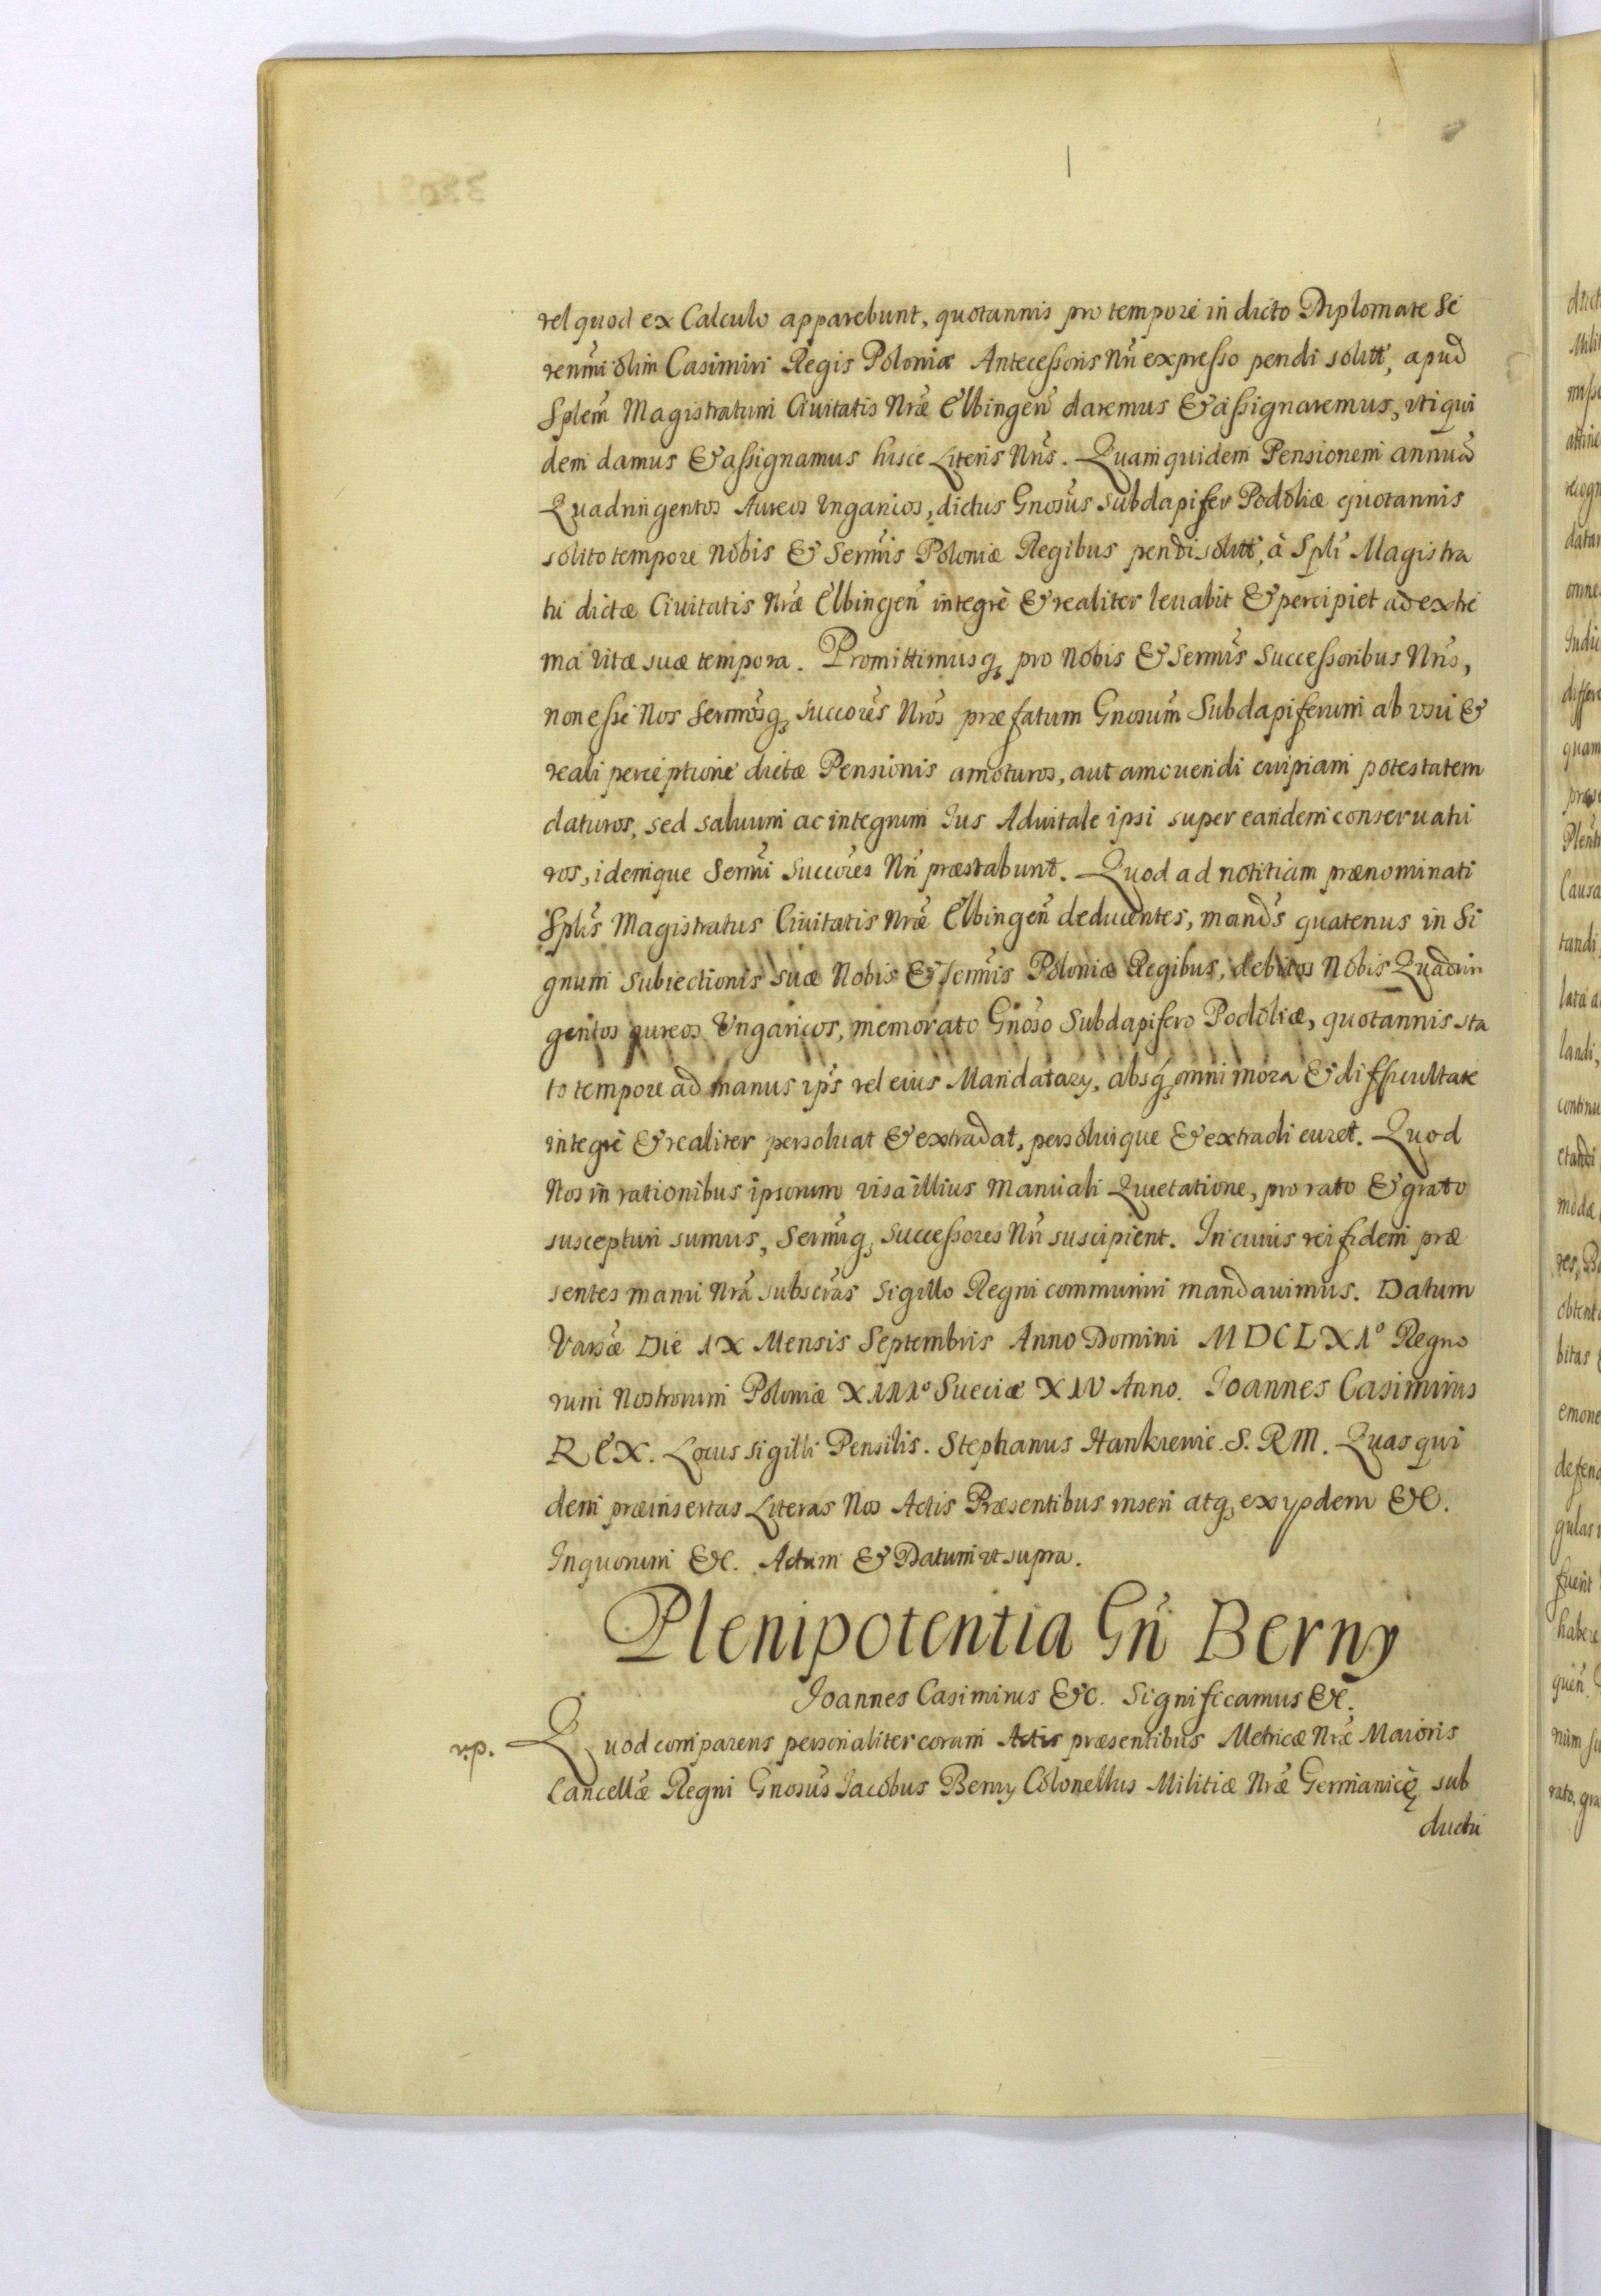 vel quod ex Calculo apparebunt, quotannis pro tempore in dicto Diplomate Se
renm̃i olim Casimiri Regis Poloniæ Antecessoris Nrĩ expresso pendi solitt, apud
Splem̃ Magistratum Ciuitatis Nræ̃ Elbingeñ daremus & assignaremus, vti qui
dem damus & assignamus hisce Literis Nrĩs. Quam quidem Pensionem annuã
Quadringentos Aureos Vngaricos, dictus Gnosũs Subdapifer Podoliæ quotannis
solito tempore Nobis & Sermĩs Poloniæ Regibus pendi solitt, à Splĩ Magistra
tu dictæ Ciuitatis Nræ̃ Elbingeñ integrè & realiter leuabit & percipiet ad extre
ma vitæ suæ tempora. Promittimusq, pro Nobis & Sermĩs Successoribus Nrĩs,
non esse Nos Sermosq, succorẽs Nros̃ præfatum Gnosum̃ Subdapiferum ab vsu &
reali perceptione dictæ Pensionis amoturos, aut amouendi cuipiam potestatem
daturos, sed saluum ac integrum Ius Aduitale ipsi super eandem conseruatu
ros, idemque Sermĩ Succorẽs Nrĩ præstabunt. Quod ad notitiam prænominati
Splis̃ Magistratus Ciuitatis Nræ̃ Elbingeñ deducentes, mands̃ quatenus in Si
gnum subiectionis suæ Nobis & Sermĩs Poloniæ Regibus, debitos Nobis Quadrin
gentos aureos Vngaricos, memorato Gnoso̊ Subdapifero Podoliæ, quotannis sta
to tempore ad manus ips̃ vel eius Mandatary, absq, omni mora & difficultate
integrè & realiter persoluat & extradat, persoluique & extradi curet. Quod
Nos in rationibus ipsorum visa illius manuali Quietatione, pro rato & grato
suscepturi sumus, Sermĩq, Successores Nrĩ suscipient. In cuius rei fidem præ
sentes manu Nrã subscrãs Sigillo Regni communiri mandauimus. Datum
Varsæ̃ Die IX Mensis Septembris Anno Domini MDCLXI° Regno
rum Nostrorum Poloniæ XIII° Sueciæ XIV Anno. Ioannes Casimirus
REX. Locus Sigilli Pensilis. Stephanus Hankiewic. S. RM. Quas qui
dem præinsertas Literas Nos Actis Præsentibus inseri atq, ex ysdem &c.
In quorum &c. Actum & Datum vt supra.
Plenipotentia Gñ Berny
Ioannes Casimirus &c. Significamus &c.
Quod comparens personaliter coram Actis præsentibus Metricæ Nræ̃ Maioris
Cancellæ̃ Regni Gnosũs Iacobus Berny Colonellus Militiæ Nræ̃ Germanicę sub
ductu